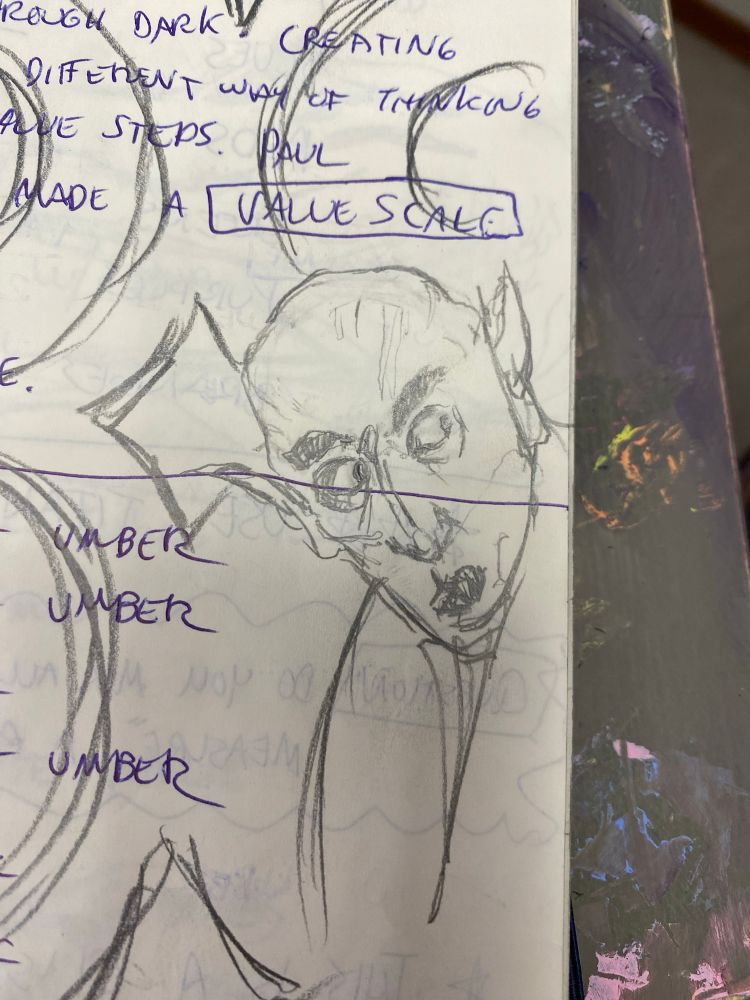 ROUGH DARK. CREATING
DIFFERENT WAY OF THINKING
VALUE STEPS. PAUL
MADE A VALUE SCALE
E.
UMBER
UMBER
UMBER